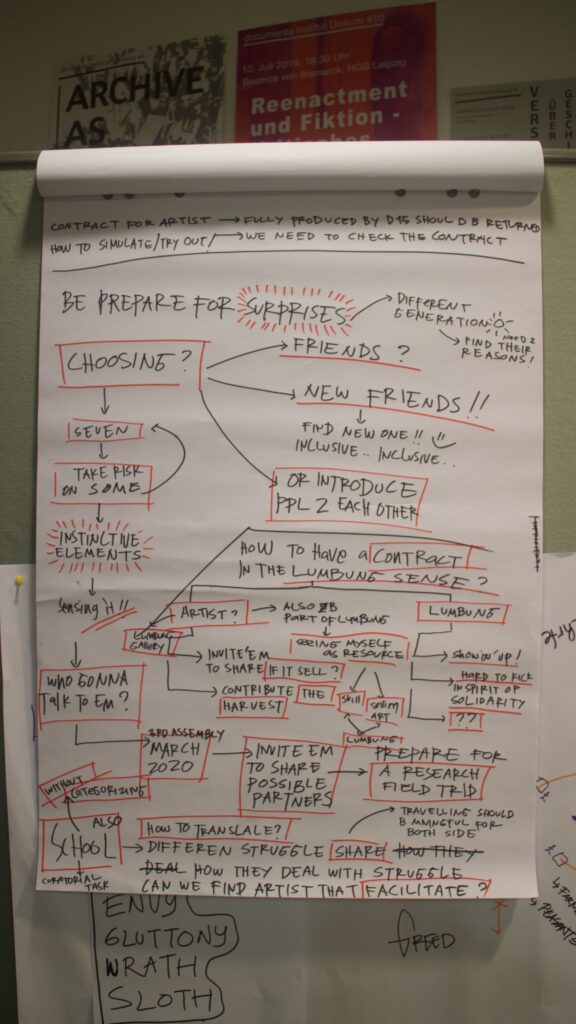 ARCHIVE
AS
documenta Institut Diskurs #10
10. Juli 2019, 18:30 Uhr
Beatrice von Bismarck, HGB Leipzig
Reenactment
und Fiktion -
VERS
ÜBER
GESCHI
CONTRACT FOR ARTIST → FULLY PRODUCED BY D15 SHOULD B RETURNED
HOW TO SIMULATE/TRY OUT/ → WE NEED TO CHECK THE CONTRACT
BE PREPARE FOR SURPRISES → DIFFERENT
GENERATION
NEED 2
→ FIND THEIR
REASONS!
CHOOSING?
FRIENDS?
NEW FRIENDS!!
FIND NEW ONE!!
INCLUSIVE.. INCLUSIVE..
OR INTRODUCE
PPL 2 EACH OTHER
SEVEN
TAKE RISK
ON SOME
INSTINCTIVE
ELEMENTS
Sensing it!!
WHO GONNA
TALK TO EM?
HOW TO HAVE A CONTRACT
IN THE LUMBUNG SENSE?
ARTIST? → ALSO B
PART OF LUMBUNG
LUMBUNG
LUMBUNG
GALLERY
SEEING MYSELF
AS RESOURCE
→ INVITE'EM
TO SHARE IF IT SELL?
→ CONTRIBUTE THE
HARVEST
SKILL
SELLING
ART
LUMBUNG
→ SHOWIN' UP!
→ HARD TO KICK
IN SPIRIT OF
SOLIDARITY
→ ??
3RD ASSEMBLY
MARCH
2020
→ INVITE EM
TO SHARE
POSSIBLE
PARTNERS
→ PREPARE FOR
A RESEARCH
FIELD TRIP
TRAVELLING SHOULD
B MNINGFUL FOR
BOTH SIDE
WITHOUT
CATEGORIZING
ALSO
SCHOOL
CURATORIAL
TASK
HOW TO TRANSLALE?
→ DIFFEREN STRUGGLE SHARE HOW THEY
DEAL HOW THEY DEAL WITH STRUGGLE
CAN WE FIND ARTIST THAT FACILITATE?
ENVY
GLUTTONY
WRATH
SLOTH
GREED
PEASANTS